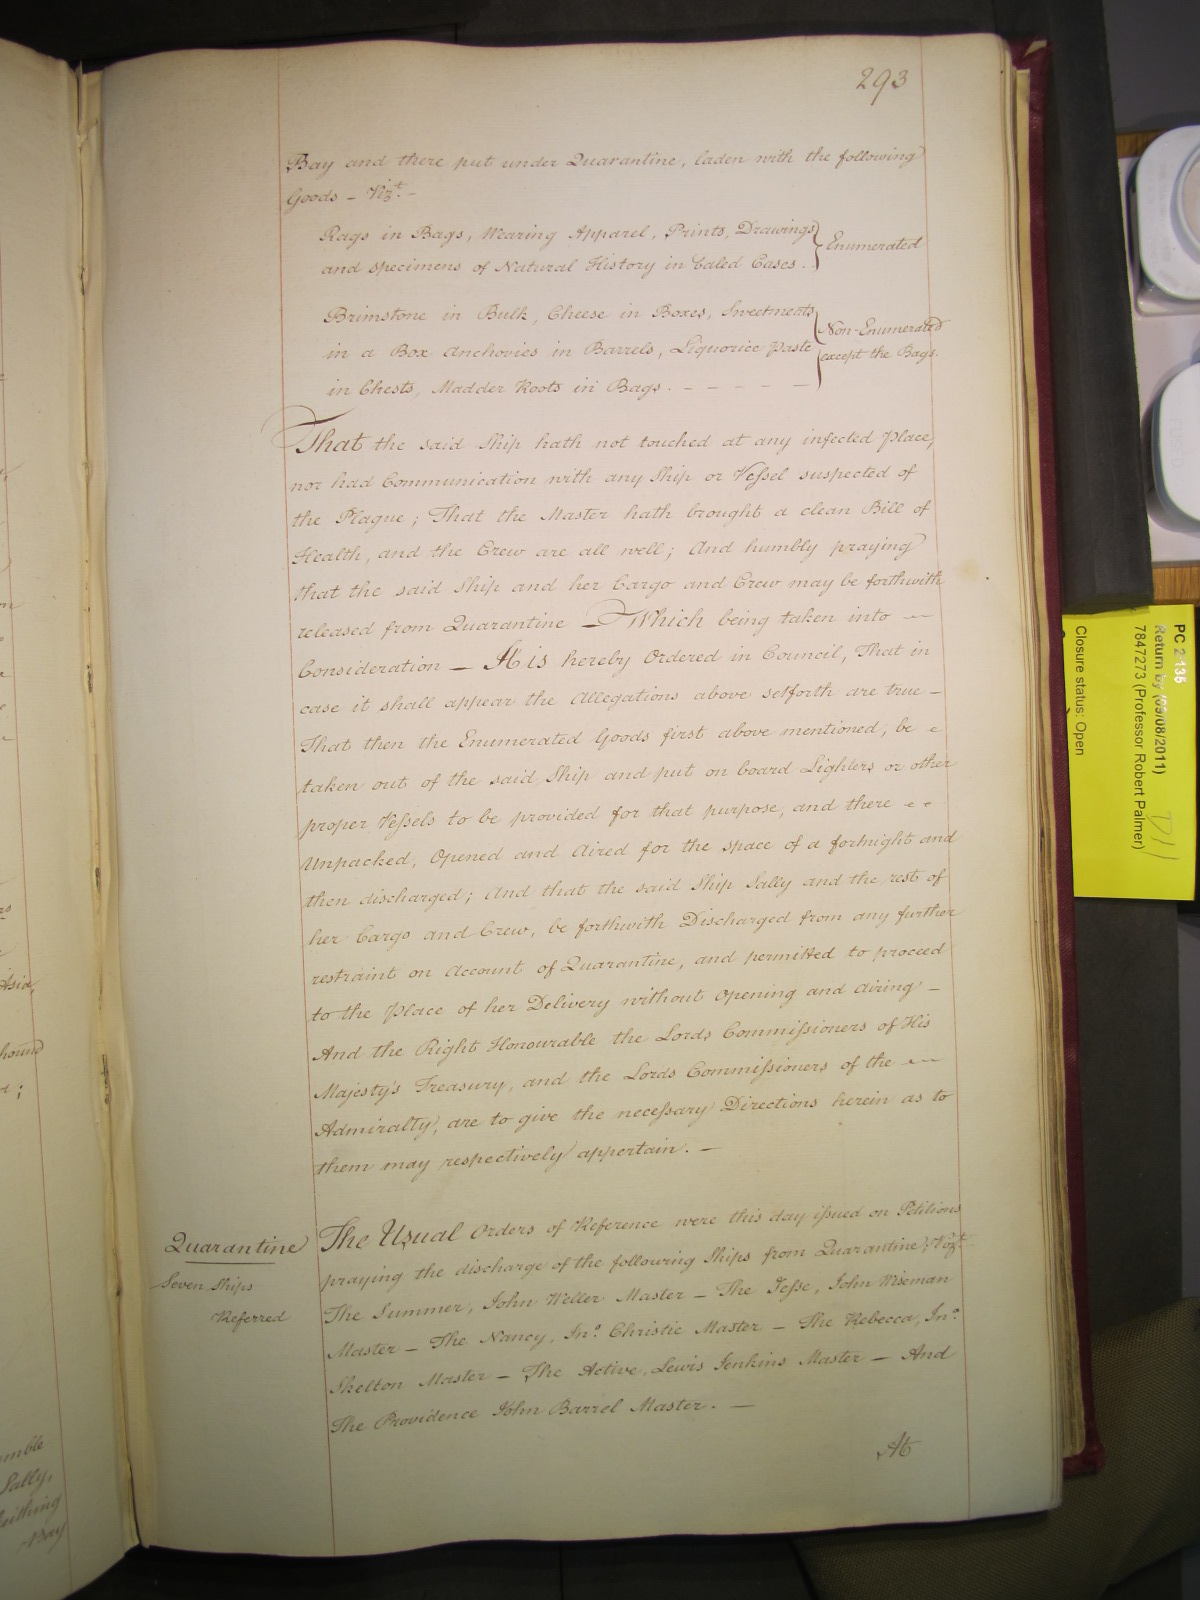 293
Bay and there put under Quarantine, laden with the following
Goods – Vizt. –
Rags in Bags, Wearing Apparel, Prints, Drawings
and specimens of Natural History in baled Cases.
Enumerated
Brimstone in Bulk, Cheese in Boxes, Sweetmeats
in a Box Anchovies in Barrels, Liquorice paste
in Chests, Madder Roots in Bags. – – – – –
Non-Enumerated
except the Bags.
That the said Ship hath not touched at any infected Place,
nor had Communication with any Ship or Vessel suspected of
the Plague; That the Master hath brought a clean Bill of
Health, and the Crew are all well; And humbly praying
that the said Ship and her Cargo and Crew may be forthwith
released from Quarantine – Which being taken into
Consideration – It is hereby Ordered in Council, That in
case it shall appear the Allegations above setforth are true –
That then the Enumerated Goods first above mentioned, be
taken out of the said Ship and put on board Lighters or other
proper Vessels to be provided for that purpose, and there
Unpacked, Opened and Aired for the space of a fortnight and
then discharged; And that the said Ship Sally and the rest of
her Cargo and Crew, be forthwith Discharged from any further
restraint on Account of Quarantine, and permitted to proceed
to the Place of her Delivery without opening and Airing –
And the Right Honourable the Lords Commissioners of His
Majesty's Treasury, and the Lords Commissioners of the
Admiralty, are to give the necessary Directions herein as to
them may respectively appertain. –
Quarantine
Seven Ships
Referred
The Usual Orders of Reference were this day issued on Petitions
praying the discharge of the following Ships from Quarantine; Vizt.
The Summer, John Weller Master – The Jesse, John Wiseman
Master – The Nancy, Jno. Christie Master – The Rebecca, Jno.
Skelton Master – The Active, Lewis Jenkins Master – And
The Providence John Barrel Master. –
At
Asia,
hound
d;
umble
Sally,
Bay
PC 2 135
Return by (09/08/2011)
7847273 (Professor Robert Palmer)
Closure status: Open